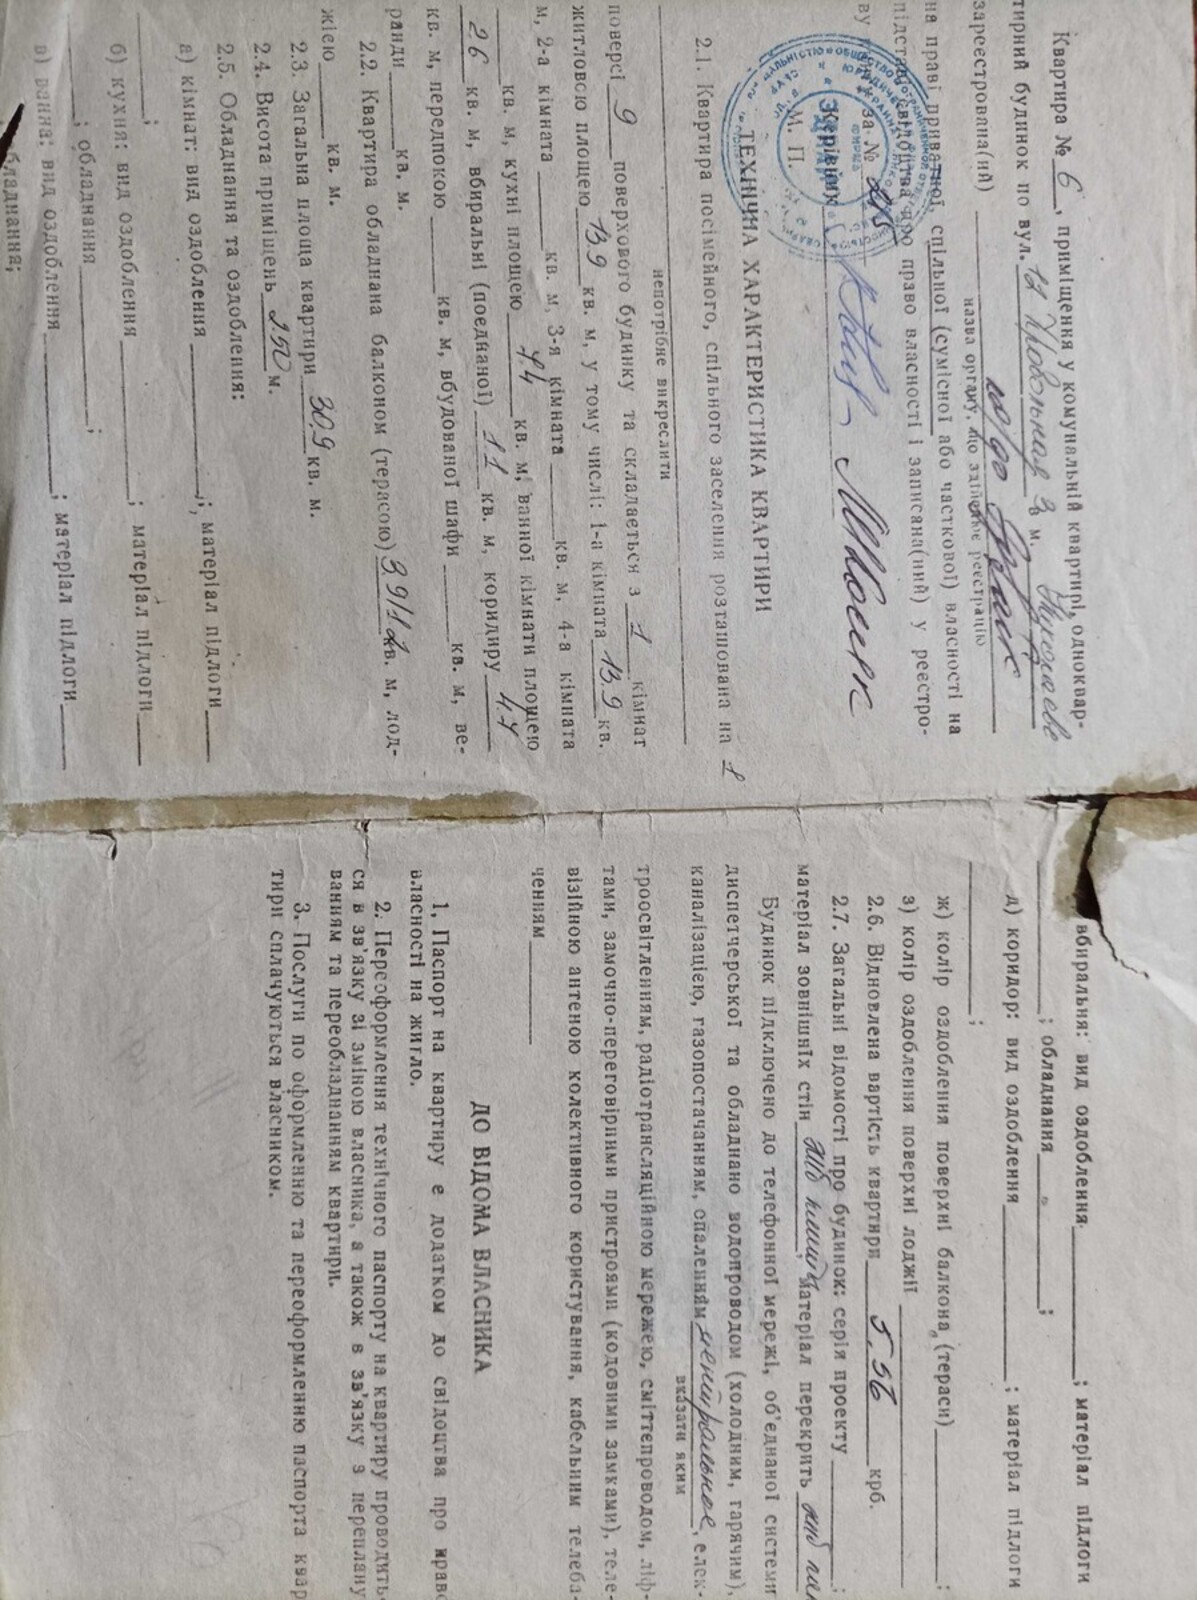 Квартира № 6, приміщення у комунальній квартирі, одноквар-
тирний будинок по вул. 12 Продольная 3 в м. Николаеве
зареєстрована(ний)
назва органу, що здійснює реєстрацію
на праві приватної, спільної (сумісної або часткової) власності на
підставі свідоцтва про право власності і записана(ний) у реєстро-
ву за №
Керівник
М. П.
ТЕХНІЧНА ХАРАКТЕРИСТИКА КВАРТИРИ
2.1. Квартира посімейного, спільного заселення розташована на 1
непотрібне викреслити
поверсі 9 поверхового будинку та складається з 1 кімнат
житловою площею 13,9 кв. м, у тому числі: 1-а кімната 13,9 кв.
м, 2-а кімната кв. м, 3-я кімната кв. м, 4-а кімната
кв. м, кухні площею 7,4 кв. м, ванної кімнати площею
2,6 кв. м, вбиральні (поєднаної) 1,1 кв. м, коридиру 4,7
кв. м, передпокою кв. м, вбудованої шафи кв. м, ве-
ранди кв. м.
2.2. Квартира обладнана балконом (терасою) 3,9/1,2 кв. м, лод-
жією кв. м.
2.3. Загальна площа квартири 30,9 кв. м.
2.4. Висота приміщень 2.50 м.
2.5. Обладнання та оздоблення:
а) кімнат: вид оздоблення ; матеріал підлоги
б) кухня: вид оздоблення ; матеріал підлоги
; обладнання ;
в) ванна: вид оздоблення ; матеріал підлоги
обладнання;
вбиральня: вид оздоблення ; матеріал підлоги
; обладнання ;
д) коридор: вид оздоблення ; матеріал підлоги
;
ж) колір оздоблення поверхні балкона (тераси) ;
з) колір оздоблення поверхні лоджії
2.6. Відновлена вартість квартири 5,56 крб.
2.7. Загальні відомості про будинок: серія проекту ;
матеріал зовнішніх стін матеріал перекрить
Будинок підключено до телефонної мережі, об'єднаної системи
диспетчерської та обладнано водопроводом (холодним, гарячим),
каналізацією, газопостачанням, опаленням центральное, елек-
вказати яким
троосвітленням, радіотрансляційною мережею, сміттепроводом, ліф-
тами, замочно-переговірними пристроями (кодовими замками), теле-
візійною антеною колективного користування, кабельним телеба-
ченням
ДО ВІДОМА ВЛАСНИКА
1. Паспорт на квартиру є додатком до свідоцтва про право
власності на житло.
2. Переоформлення технічного паспорту на квартиру проводить-
ся в зв'язку зі зміною власника, а також в зв'язку з переплану
ванням та переобладнанням квартири.
3. Послуги по оформленню та переоформленню паспорта квар
тири сплачуються власником.